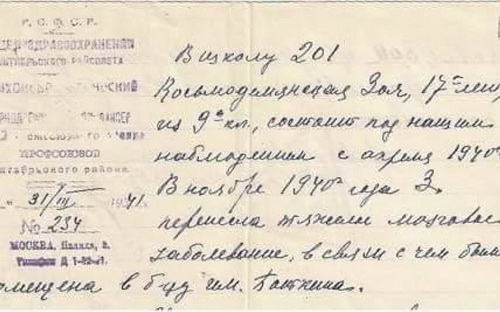 Р. С. Ф. С. Р.
ЗДРАВООХРАНЕНИЯ
Октябрьского райсовета
ПРОФСОЮЗОВ
Октябрьского района
„ 31/III 1941
№ 234
МОСКВА,
Телефон Д 1-
В школу 201
Космодемянская Зоя, 17 лет,
из 9го кл., состоит под нашим
наблюдением с апреля 1940г
В ноябре 1940го года З.
перенесла тяжелое мозговое
заболевание, в связи с чем была
помещена в б-цу им. Боткина.